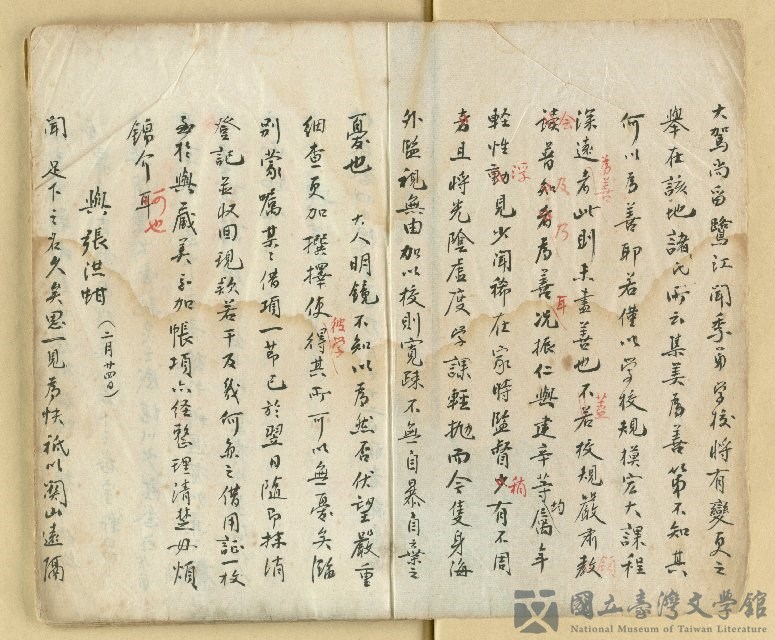 大駕尚留鷺江聞季弟學校將有變更之
舉在該地諸氏所云集美為善第不知其
何以為善耶若僅以學校規模宏大課程
為善
深遠者此則未盡善也不若校規嚴肅教
蓋
讀普知者為善況振仁與建辛等屬年
会及乃耳
均
輕性動見少聞稀在家時監督少有不周
浮
稍
者且將光陰虛度學課輕拋而令隻身海
外監視無由加以校則寬疎不無自暴自棄之
憂也 大人明鏡不知以為然否伏望嚴重
細查更加撰擇使得其所可以無憂矣臨
彼等
別蒙囑某之借項一節已於翌日隨即抹消
登記並收回現款若干及幾何負之借用証一枚
至於與藏美加帳項亦經整理清楚毋煩
錦介耳
可也
與張洪蚶 (二月廿四日)
聞 足下之名久矣思一見為快祗以關山遠隔
國立臺灣文學館
National Museum of Taiwan Literature